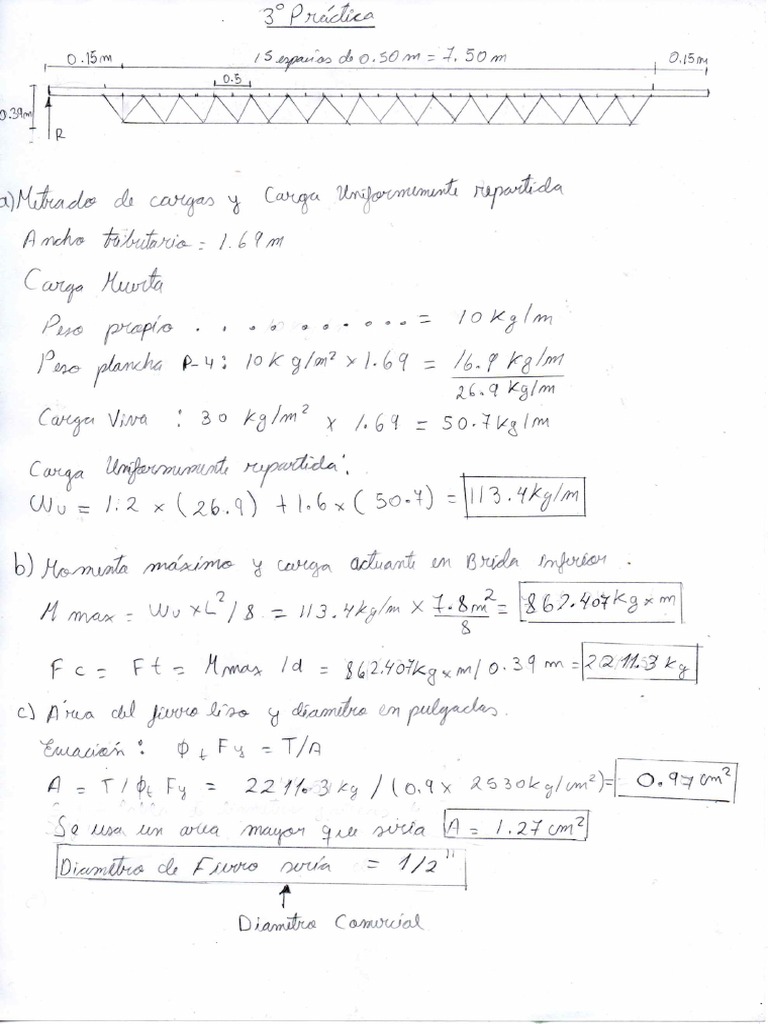 3° Práctica
0.15m 15 espacios de 0.50 m = 7.50 m 0.15m
0.5
0.39m
R
a) Metrado de cargas y Carga Uniformemente repartida
Ancho tributario = 1.69 m
Carga Muerta
Peso propio . . . . . . . . . . . = 10 Kg/m
Peso plancha P-4: 10 Kg/m² × 1.69 = 16.9 Kg/m
26.9 Kg/m
Carga Viva : 30 Kg/m² × 1.69 = 50.7 Kg/m
Carga Uniformemente repartida:
Wu = 1.2 × (26.9) + 1.6 × (50.7) = 113.4 kg/m
b) Momento máximo y carga actuante en Brida inferior.
M max = Wu × L²/8 = 113.4 kg/m × 7.8m²/8 = 862.407 kg × m
Fc = Ft = Mmax /d = 862.407 Kg × m / 0.39 m = 2211.3 kg
c) Área del fierro liso y diámetro en pulgadas.
Ecuación: ϕt Fy = T/A
A = T/ϕt Fy = 2211.3 kg / (0.9 × 2530 kg/cm²) = 0.97 cm²
Se usa un area mayor que sería A = 1.27 cm²
Diámetro de Fierro sería = 1/2"
Diametro Comercial